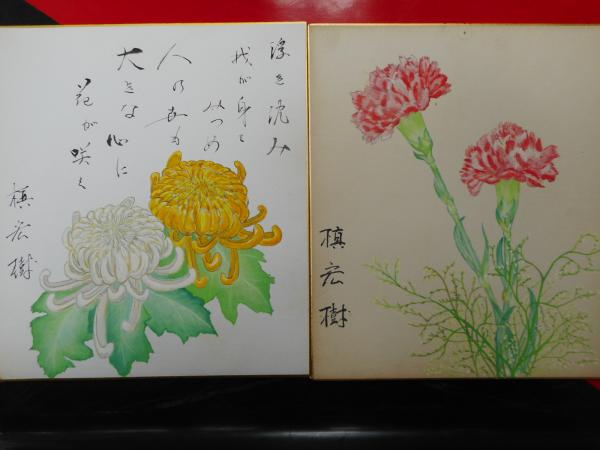 浮き沈み
我が身を
みつめ
人の世も
大きな心に
花が咲く
槙宏樹
槙宏樹